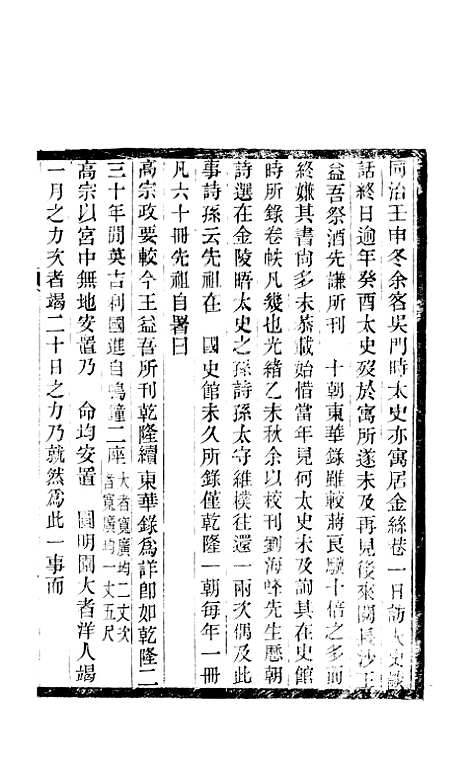 同治壬申冬余客吳門時太史亦寓居金絲巷一日訪太史談
話終日逾年癸酉太史歿於寓所遂未及再見後來閱長沙王
益吾祭酒先謙所刊　十朝東華錄雖較蔣良騏十倍之多而
終嫌其書尚多未恭載始惜當年見何太史未及詢其在史館
時所錄卷帙凡幾也光緒乙未秋余以校刊劉海峰先生歷朝
詩選在金陵晤太史之孫詩孫太守維樸往還一兩次偶及此
事詩孫云先祖在　國史館未久所錄僅乾隆一朝每年一冊
凡六十冊先祖自署曰
高宗政要較今王益吾所刊乾隆續東華錄為詳即如乾隆二
三十年間英吉利國進自鳴鐘二座大者寬廣均二丈次者寬廣均一丈五尺
高宗以宮中無地安置乃　命均安置　圓明園大者洋人竭
一月之力次者竭二十日之力乃就然為此一事而